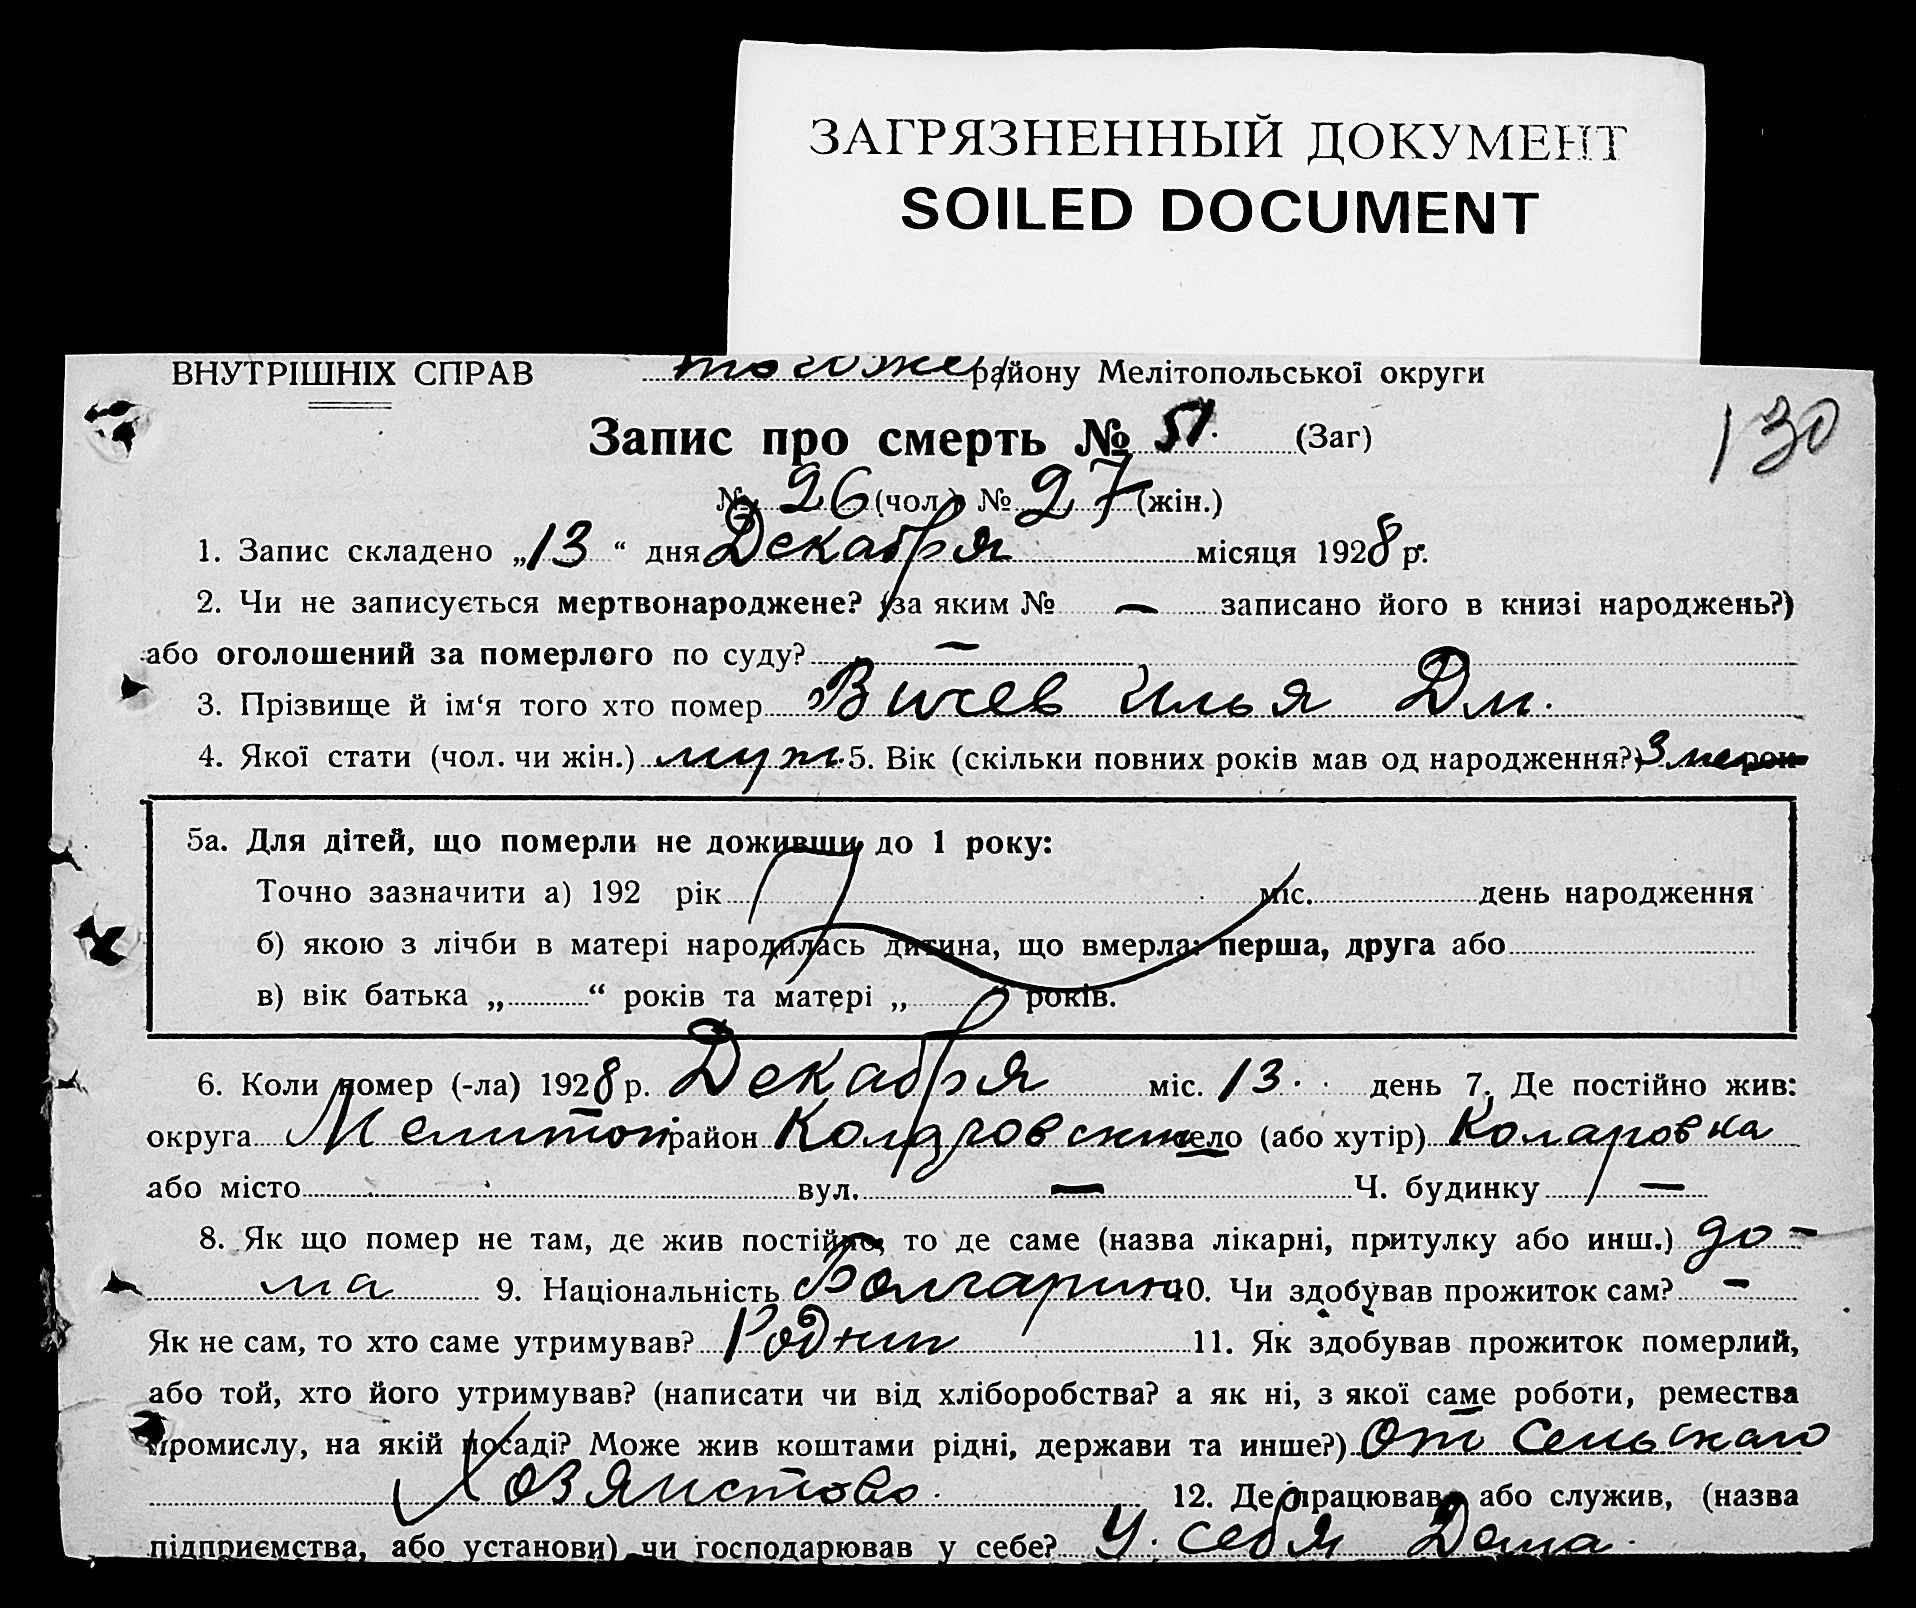 ЗАГРЯЗНЕННЫЙ ДОКУМЕНТ
SOILED DOCUMENT
ВНУТРІШНІХ СПРАВ тогоже району Мелітопольської округи
130
Запис про смерть № 51. (Заг)
№ 26 (чол.) № 27 (жін.)
1. Запис складено „13“ дня Декабря місяця 1928 р.
2. Чи не записується мертвонароджене? (за яким № — записано його в книзі народжень?)
або оголошений за померлого по суду? —
3. Прізвище й ім‘я того хто помер Вичев Илья Дм.
4. Якої стати (чол. чи жін.) муж. 5. Вік (скільки повних років мав од народження?) 3
5а. Для дітей, що померли не доживши до 1 року:
Точно зазначити а) 192 рік міс. день народження
б) якою з лічби в матері народилась дитина, що вмерла: перша, друга або
в) вік батька „ “ років та матері „ “ років.
6. Коли помер (-ла) 1928 р. Декабря міс. 13. день 7. Де постійно жив:
округа Мелитоп район Коларовский село (або хутір) Коларовка
або місто вул. — Ч. будинку —
8. Як що помер не там, де жив постійно, то де саме (назва лікарні, притулку або инш.) до-
ма 9. Національність Болгарин 10. Чи здобував прожиток сам? —
Як не сам, то хто саме утримував? Родит 11. Як здобував прожиток померлий,
або той, хто його утримував? (написати чи від хліборобства? а як ні, з якої саме роботи, ремества
промислу, на якій посаді? Може жив коштами рідні, держави та инше?) От Сельскаго
Хозяиства. 12. Де працював або служив, (назва
підприємства, або установи) чи господарював у себе? У себя Дома.